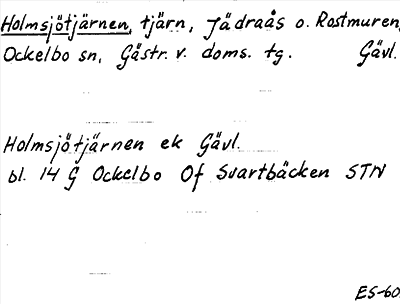 Holmsjötjärnen, tjärn, Jädraås o. Rostmuren,
Ockelbo sn, Gästr. v. doms. tg. Gävl.
Holmsjötjärnen ek Gävl.
bl. 14 G Ockelbo Of Svartbäcken STN
ES-60